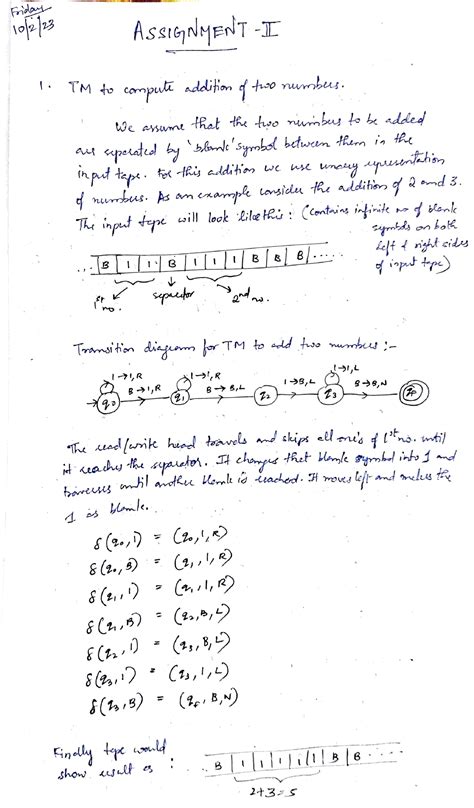 Friday
10/2/23
ASSIGNMENT - II
1. TM to compute addition of two numbers.
We assume that the two numbers to be added
are seperated by 'blank' symbol between them in the
input tape. For this addition we use unary representation
of numbers. As an example consider the addition of 2 and 3.
The input tape will look like this : (contains infinite no of blank
symbols on both
left & right sides
of input tape)
... B 1 1 B 1 1 1 B B B ....
1st no. seperator 2nd no.
Transition diagram for TM to add two numbers :-
1→1,R 1→1,R 1→1,L
B→1,R B→B,L 1→B,L B→B,N
q0 q1 q2 q3 qF
The read/write head travels and skips all one's of 1st no. until
it reaches the separator. It changes that blank symbol into 1 and
traverses until another blank is reached. It moves left and makes the
1 as blank.
δ(q0,1) = (q0,1,R)
δ(q0,B) = (q1,1,R)
δ(q1,1) = (q1,1,R)
δ(q1,B) = (q2,B,L)
δ(q2,1) = (q3,B,L)
δ(q3,1) = (q3,1,L)
δ(q3,B) = (qF,B,N)
Finally tape would
show result as : .. B 1 1 1 1 1 B B ....
2+3=5